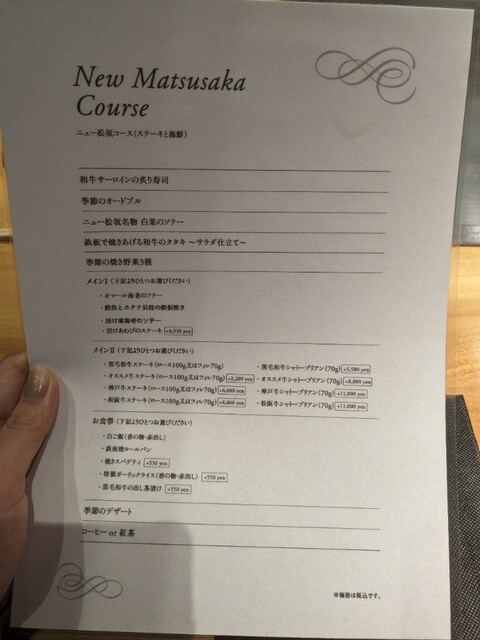 New Matsusaka
Course
ニュー松坂コース(ステーキと海鮮)
和牛サーロインの炙り寿司
季節のオードブル
ニュー松坂名物 白菜のソテー
鉄板で焼きあげる和牛のタタキ ～サラダ仕立て～
季節の焼き野菜3種
メインI (下記よりひとつお選びください)
・オマール海老のソテー
・鮮魚とホタテ貝柱の鉄板焼き
・活け車海老のソテー
・活けあわびのステーキ
メインII (下記よりひとつお選びください)
・黒毛和牛ステーキ(ロース100g又はフィレ70g)
・オススメ牛ステーキ(ロース100g又はフィレ70g) +2,200 yen
・神戸牛ステーキ(ロース100g又はフィレ70g) +6,600 yen
・松阪牛ステーキ(ロース100g又はフィレ70g) +6,600 yen
・黒毛和牛シャトーブリアン(70g) +5,500 yen
・オススメ牛シャトーブリアン(70g) +8,800 yen
・神戸牛シャトーブリアン(70g) +11,000 yen
・松阪牛シャトーブリアン(70g) +11,000 yen
お食事 (下記よりひとつお選びください)
・白ご飯(香の物・赤出し)
・鉄板焼ロールパン
・焼きスパゲティ +550 yen
・特製ガーリックライス(香の物・赤出し) +550 yen
・黒毛和牛の出し茶漬け +550 yen
季節のデザート
コーヒー or 紅茶
※価格は税込です。